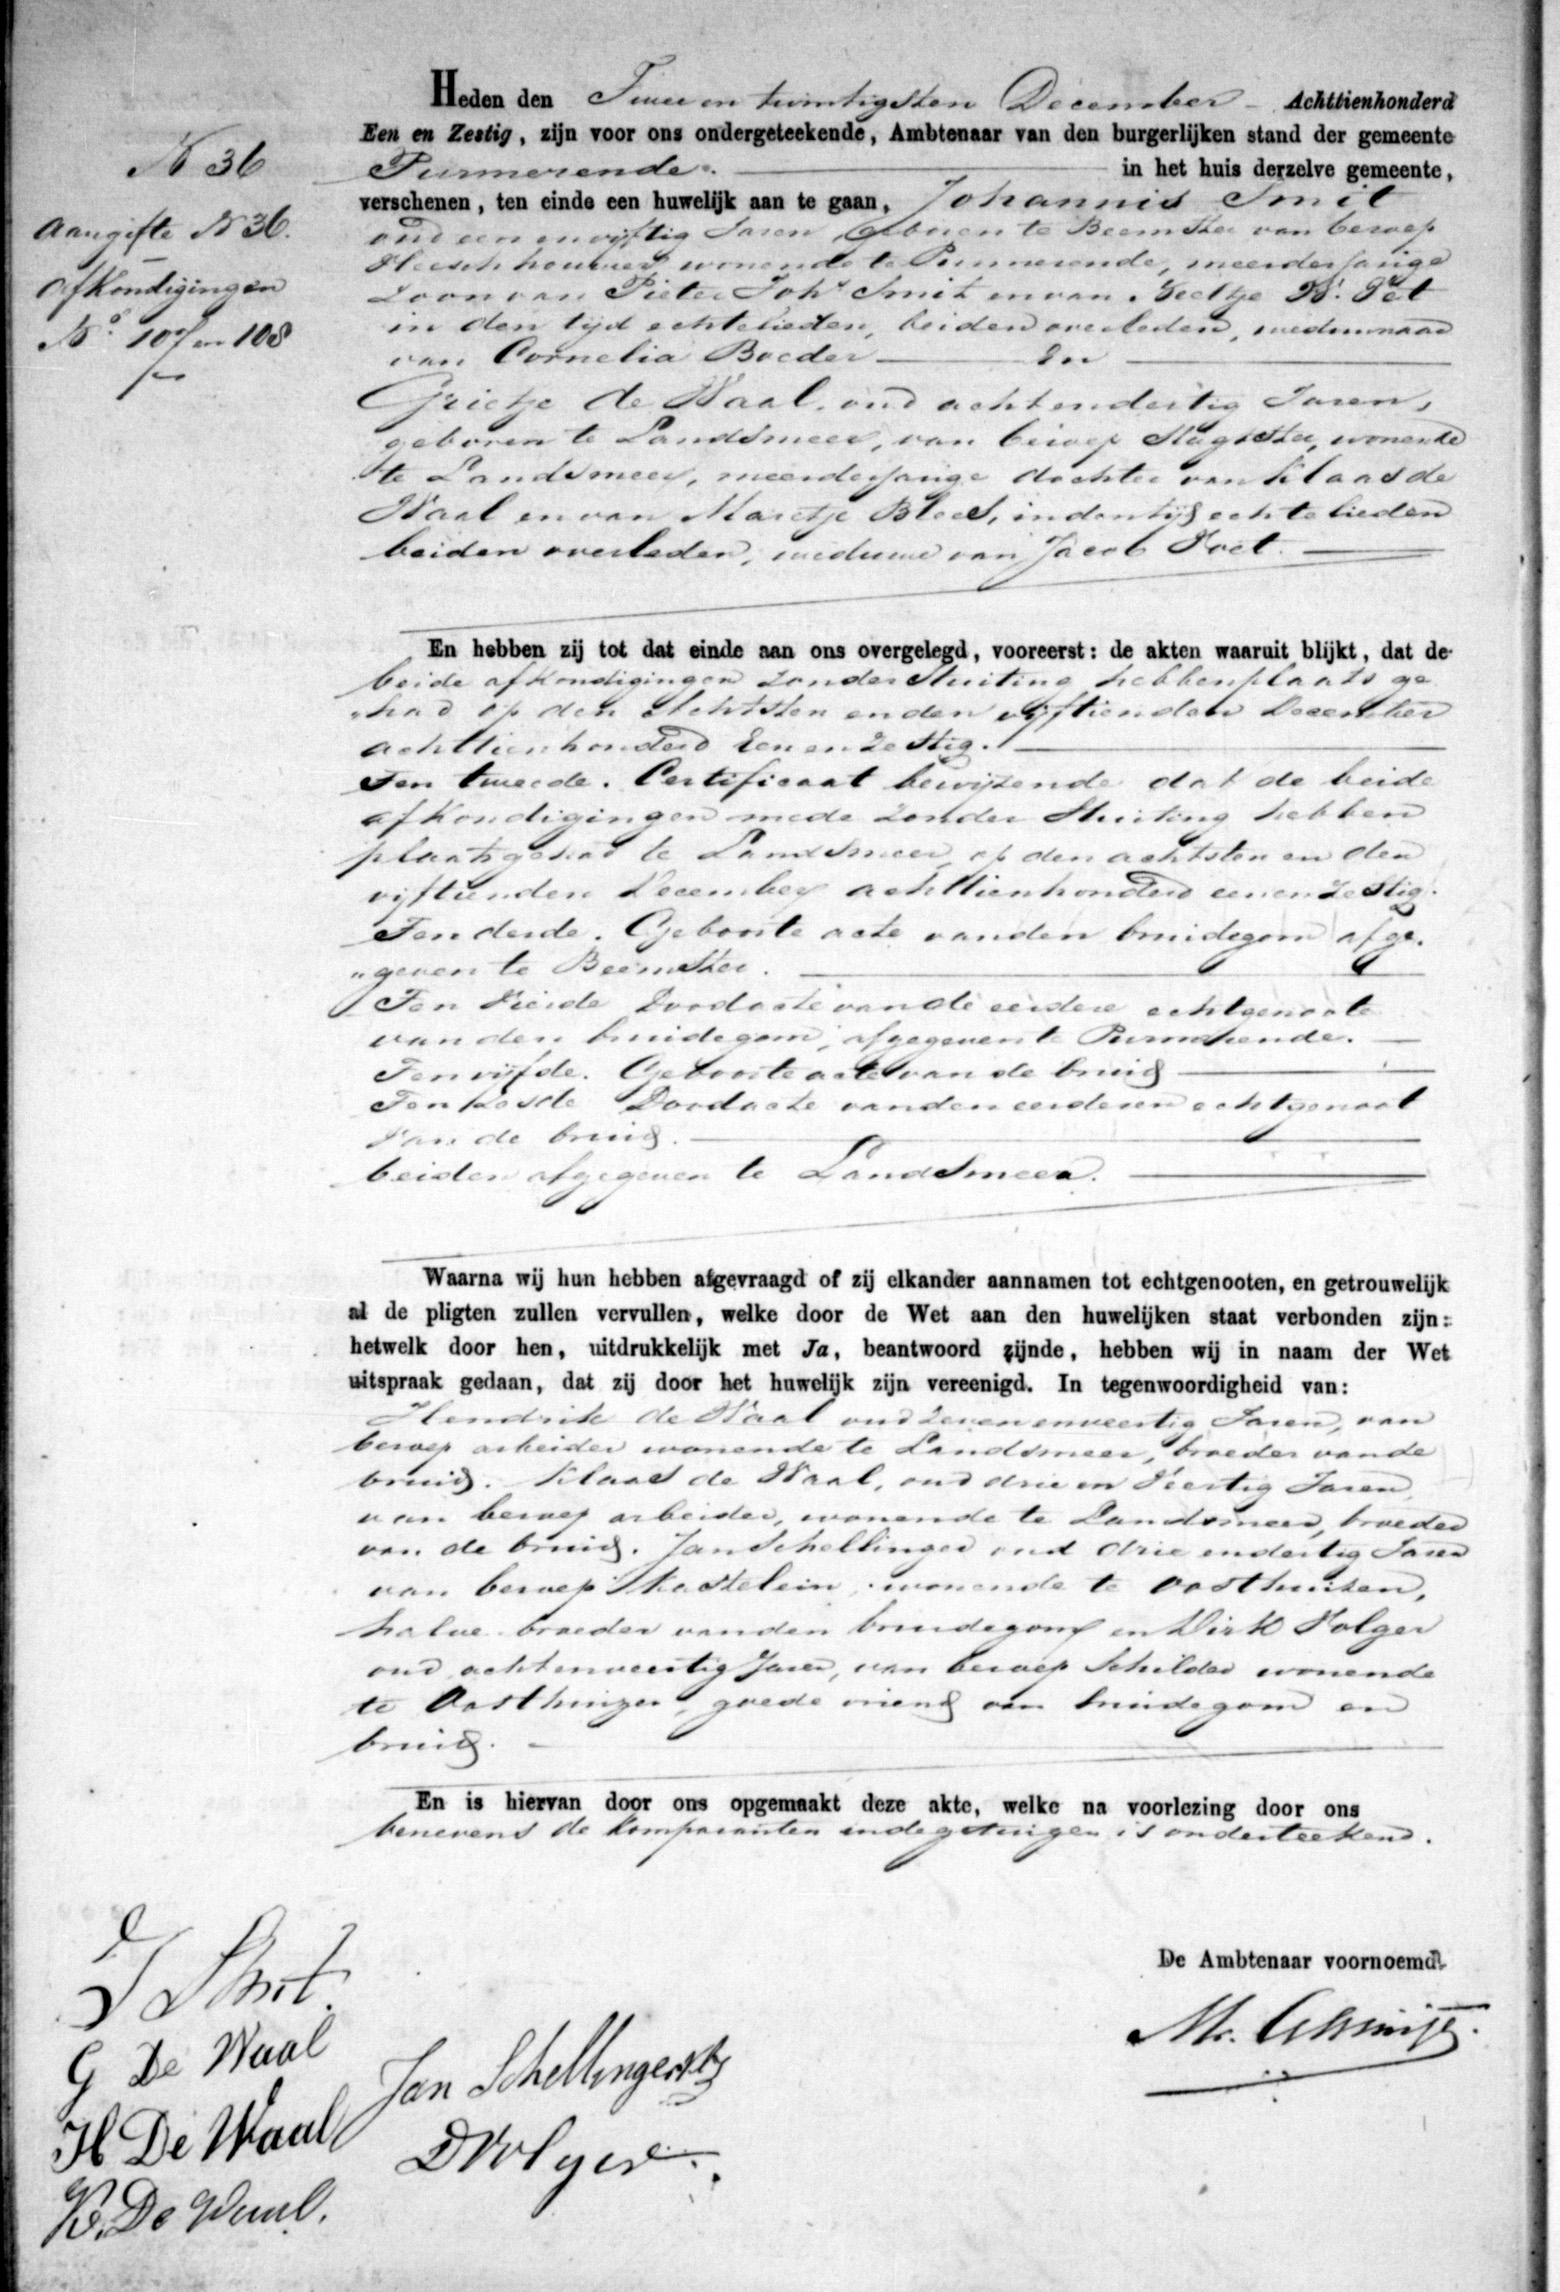 N 36
Aangifte N 36.
Afkondigingen
No. 107 en 108
Heden den Twee en twintigsten December - Achttienhonderd
Een en Zestig, zijn voor ons ondergeteekende, Ambtenaar van den burgerlijken stand der gemeente
Purmerende. in het huis derzelve gemeente,
verschenen, ten einde een huwelijk aan te gaan, Johannis Smit
oud een en vijftig Jaren, Geboren te Beemster van beroep
Vleeschhouwer wonende te Purmerende, meerderjarige
Zoon van Pieter Johs Smit en van Neeltje Pet
in den tijd echtelieden, beiden overleden, weduwnaar
van Cornelia Boeder En
Grietje de Waal, oud achtendertig Jaren,
geboren te Landsmeer, van beroep wonende
te Landsmeer, meerderjarige dochter van Klaas de
Waal en van Maretje Blees, in den tijd echtelieden
beiden overleden, weduwe van Jacob Poet.
En hebben zij tot dat einde aan ons overgelegd, vooreerst: de akten waaruit blijkt, dat de
beide afkondigingen zonder Stuiting hebben plaats ge
„had op den Achtsten en den vijftienden December
achttienhonderd Een en Zestig.
Ten tweede. Certificaat bewijzende dat de beide
afkondigingen mede zonder Stuiting hebben
plaatsgehad te Landsmeer op den achtsten en den
vijftienden December achttienhonderd een en Zestig.
Ten derde. Geboorte acte van den bruidegom afge.
„geven te Beemster.
Ten Vierde Doodacte van de eerdere echtgenoote
van den bruidegom, afgegeven te Purmerende.
Ten vijfde. Geboorte acte van de bruid
Ten Zesde Doodacte van den eerderen echtgenoot
Van de bruid.
beiden afgegeven te Landsmeer.
Waarna wij hun hebben afgevraagd of zij elkander aannamen tot echtgenooten, en getrouwelijk
al de pligten zullen vervullen, welke door de Wet aan den huwelijken staat verbonden zijn:
hetwelk door hen, uitdrukkelijk met Ja, beantwoord zijnde, hebben wij in naam der Wet
uitspraak gedaan, dat zij door het huwelijk zijn vereenigd. In tegenwoordigheid van:
Hendrik de Waal oud zeven en veertig Jaren, van
beroep arbeider wonende te Landsmeer, broeder van de
bruid. Klaas de Waal, oud drie en Veertig Jaren,
van beroep arbeider, wonende te Landsmeer, broeder
van de bruid. Jan Schellinger oud drie en dertig Jaren
van beroep Kastelein, wonende te Oosthuizen,
halve broeder van den bruidegom en Dirk Volger
oud achtenveertig Jaren, van beroep Schilder wonende
te Oosthuizen, goede vriend van bruidegom en
bruid.
En is hiervan door ons opgemaakt deze akte, welke na voorlezing door ons
benevens de Komparanten en de getuigen is onderteekend.
De Ambtenaar voornoemd.
J Smit.
G De Waal
H De Waal
K. De Waal.
Jan Schellinger
D Volger